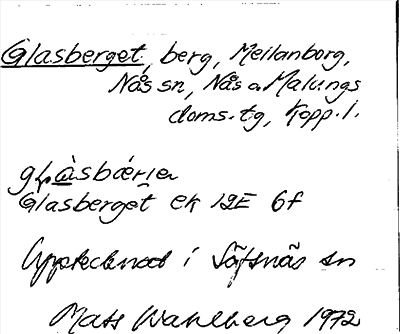 Glasberget, berg, Mellanborg,
Nås sn, Nås o. Malungs
doms. tg, Kopp. l.
Glasberget ek 12E 6f
Upptecknat i Säfsnäs sn
Mats Wahlberg 1972